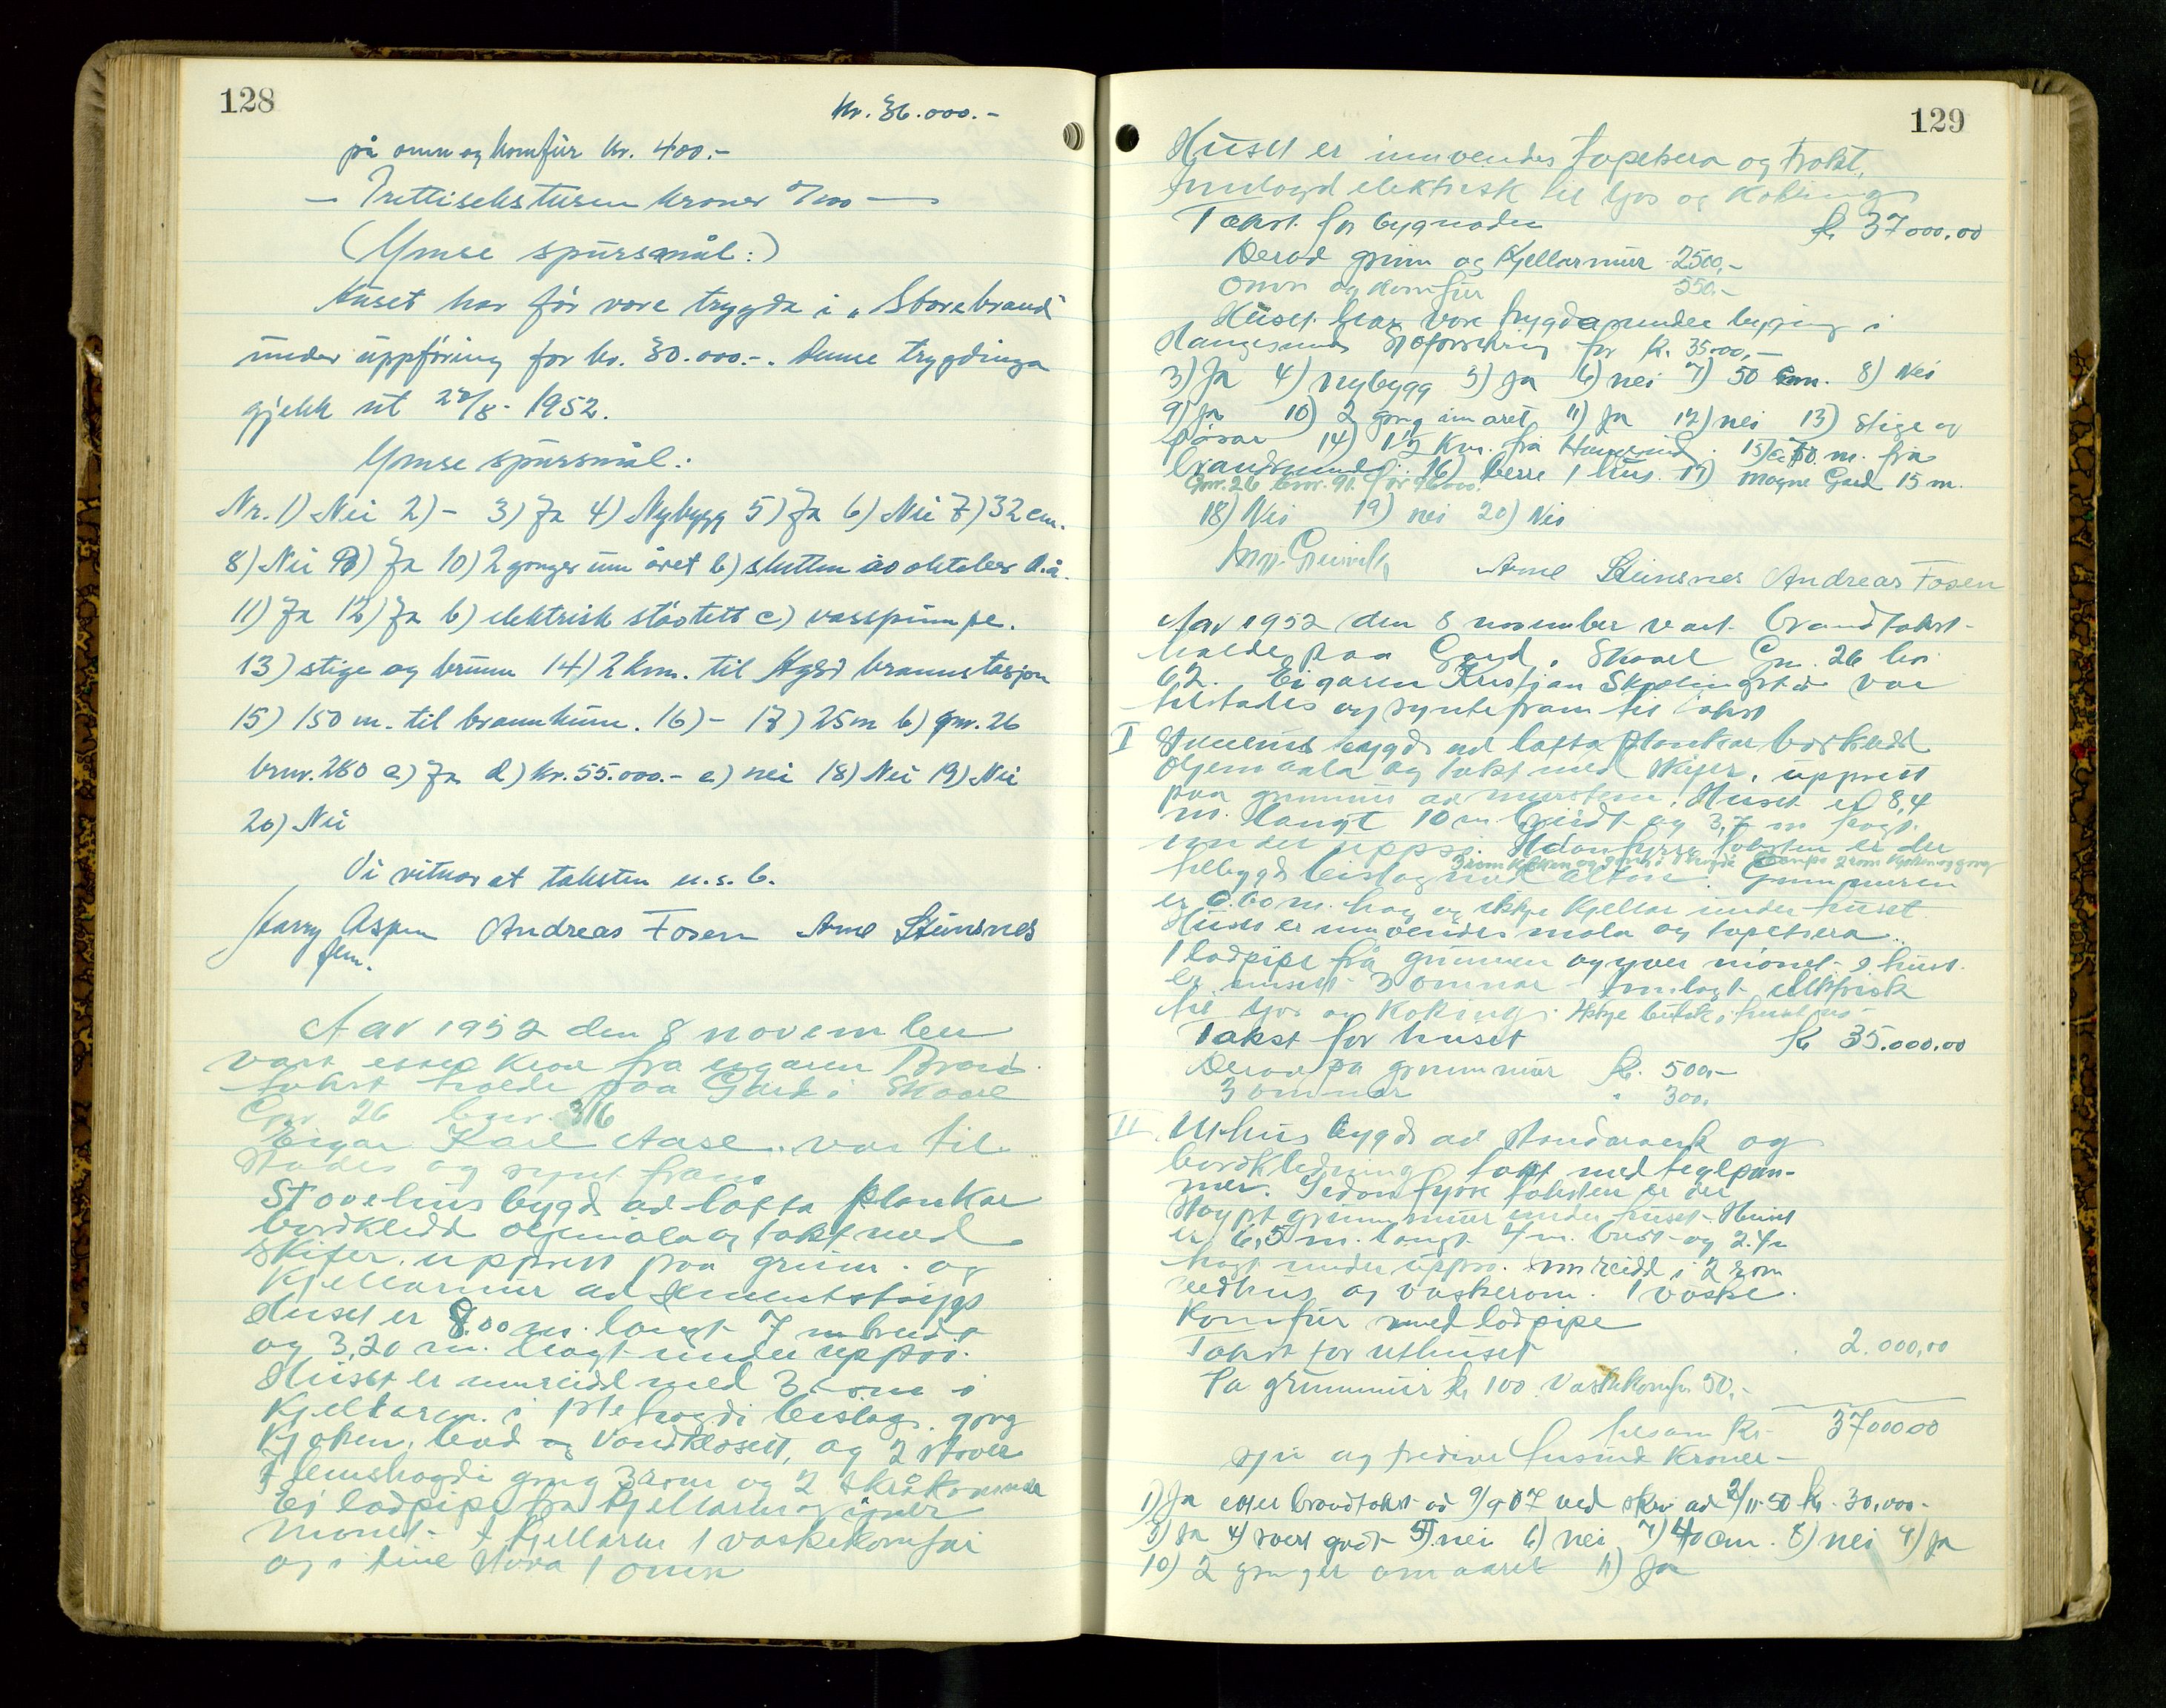 128
kr. 36.000.-
på omn og komfür kr. 400.-
- Trettisekstusen kroner 0/100 -
(Ymse spursmål:)
Huset har før vore trygda i "Storebrand"
under uppføring for kr. 30.000.-. Denne trygdinga
gjekk ut 28/8- 1952.
Ymse spursmål:
Nr. 1) Nei 2) - 3) Ja 4) Nybygg 5) Ja 6) Nei 7) 32 cm.
8) Nei 9) Ja 10) 2 gonger um året b) slutten av oktober d.å.
11) Ja 12) Ja b) elektrisk støvtett c) vasspumpe.
13) stige og brunn 14) 2 km. til Hgsd brannstasjon
15) 150 m. til brannkum. 16) - 17) 25 m b) gnr. 26
bnr. 260 c) Ja d) kr. 55.000.- e) nei 18) Nei 19) Nei
20) Nei
Vi vitnar at taksten u.s.b.
Harry Aspen Andreas Fosen Arne Steinsnes
fm.
Aar 1952 den 8 november
vart etter krav fra eigaren Brand
takst halde paa Gard i Skaare
Gnr. 26 bnr. 316
Eigar Karl Aase var til
stades og synt fram
Stovehus bygd ad lafta plankar
bordkledd oljemåla og takt med
skifer, uppsett paa grunn- og
Kjellarmur ad sementstøyp
Huset er 8.00 m. langt 7 m breidt
og 3,20 m. høgt under uppsø.
Huset er innreidd med 3 rom i
Kjellaren. i 1ste høgdi beislag, gong
Kjøken, bad og vandklosett, og 2 stover
I lemshøgdi gong 3 rom og 2 skråkommer
Ei lodpipe fra Kjellaren og yver
mønet. I Kjellaren 1 vaskekomfur
og i eine stova 1 omn
129
Huset er innvendes tapetsera og trekt,
Innlagd elektrisk til ljos og koking
Takst for bygnaden kr 37000.00
Derad grunn og Kjellarmur 2500,-
Omn og komfur 250.-
Huset har vore trygda under byging i
Haugesunds Sjøforsikring for kr. 35000,-
3) Ja 4) nybygg 5) Ja 6) nei 7) 50 cm. 8) Nei
9) Ja 10) 2 gong um året 11) Ja 12) nei 13) Stige og
14) 1½ Km. fra Haugesund. 15) 50 m. fra
brandkumme. 16) berre 1 hus. 17) Magne Gard 15 m.
Gnr. 26 bnr. 91. for
18) Nei 19) nei 20) Nei
Arne Steinsnes Andreas Fosen
Aar 1952 den 8 november vart brandtakst
halde paa Gard, Skaare Gn. 26 bn
62. Eigaren Kristjan var
tilstades og synte fram til takst
I Stovehus bygd ad lafta plankar bordkledd
oljemaala og takt med skifer, uppsett
paa grunnmur av murstein. Huset er 8,4
m. langt 10 m breidt og 3,7 m høgt
under uppsø. Sidanfyrre taksten er der
3 rom kjøken og gong i høgdi 2 rom kjøken og gong
tilbygd beislag med altan. Grunnmuren
er 0.60 m. høg og ikkje Kjellar under huset.
Huset er innvendes mala og tapetsera..
1 lodpipe frå grunnen og yver mønet. I huset
er innsett 3 omnar Innlagt elektrisk
til ljos og koking. Ikkje butikk i huset no
Takst for huset kr 35.000.00
Derav på grunnmur kr. 500.-
3 omnar " 300.
II Uthus bygd ad standarverk og
bordkledning takt med teglpan-
ner. Sidanfyrre taksten er der
støypt grunnmur under huset. Huset
er 6,5 m. langt 4 m. breidt og 2.4 m
høgt under uppsø. Innreidd i 2 rom
vedhus og vaskerom. 1 vaske.
Komfur med lodpipe
Takst for uthuset 2.000,00
På grunnmur kr 100 Vaskekomfur 50.-
tilsam kr. 37000 00
sju og tredive tusund kroner -
1) Ja etter brandtakst ad 9/9 07 ved skriv ad 2/11-50 kr. 30.000-
3) Ja 4) svert godt 5) nei 6) nei 7) 40 cm. 8) nei 9) Ja
10) 2 gonger om aaret 11) Ja